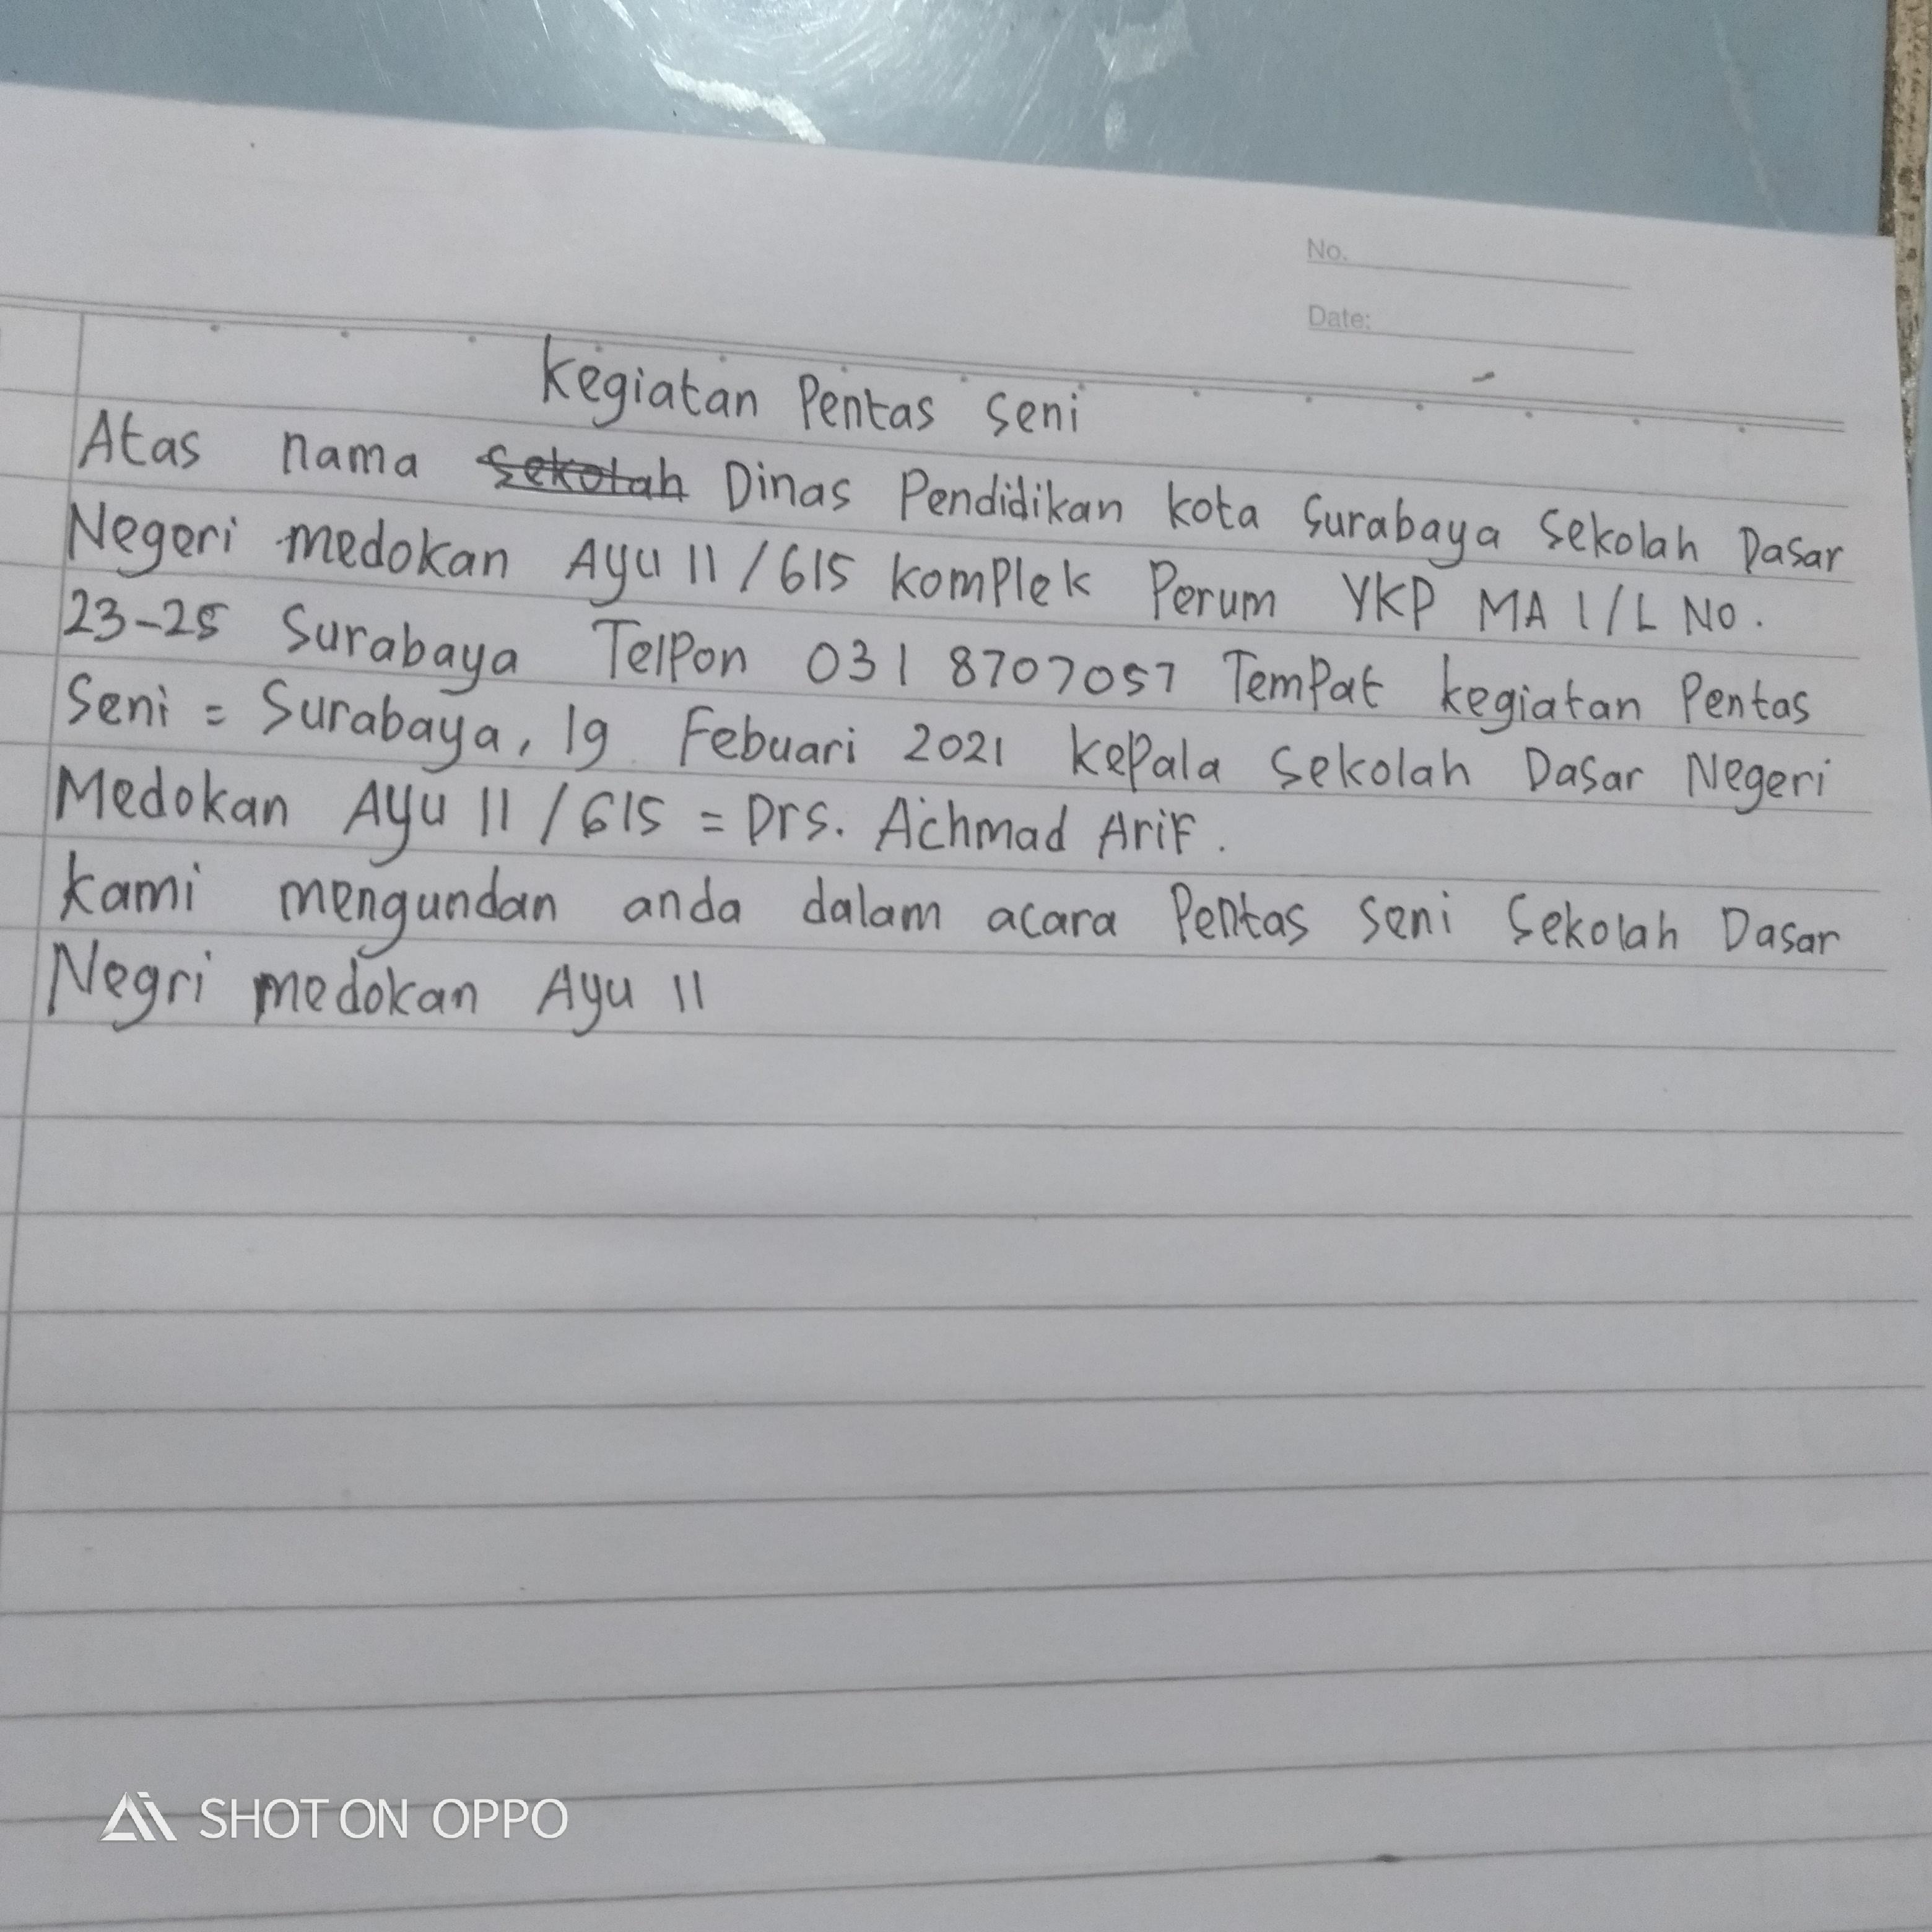 No.
Date:
Kegiatan Pentas Seni
Atas nama Sekolah Dinas Pendidikan kota Surabaya Sekolah Dasar
Negeri medokan Ayu II / 615 Komplek Perum YKP MA I/L No.
23-25 Surabaya Telpon 031 8707057 Tempat kegiatan Pentas
Seni = Surabaya, 19 Febuari 2021 kepala Sekolah Dasar Negeri
Medokan Ayu II / 615 = Drs. Achmad Arif.
kami mengundan anda dalam acara Pentas Seni Sekolah Dasar
Negri medokan Ayu II
SHOT ON OPPO